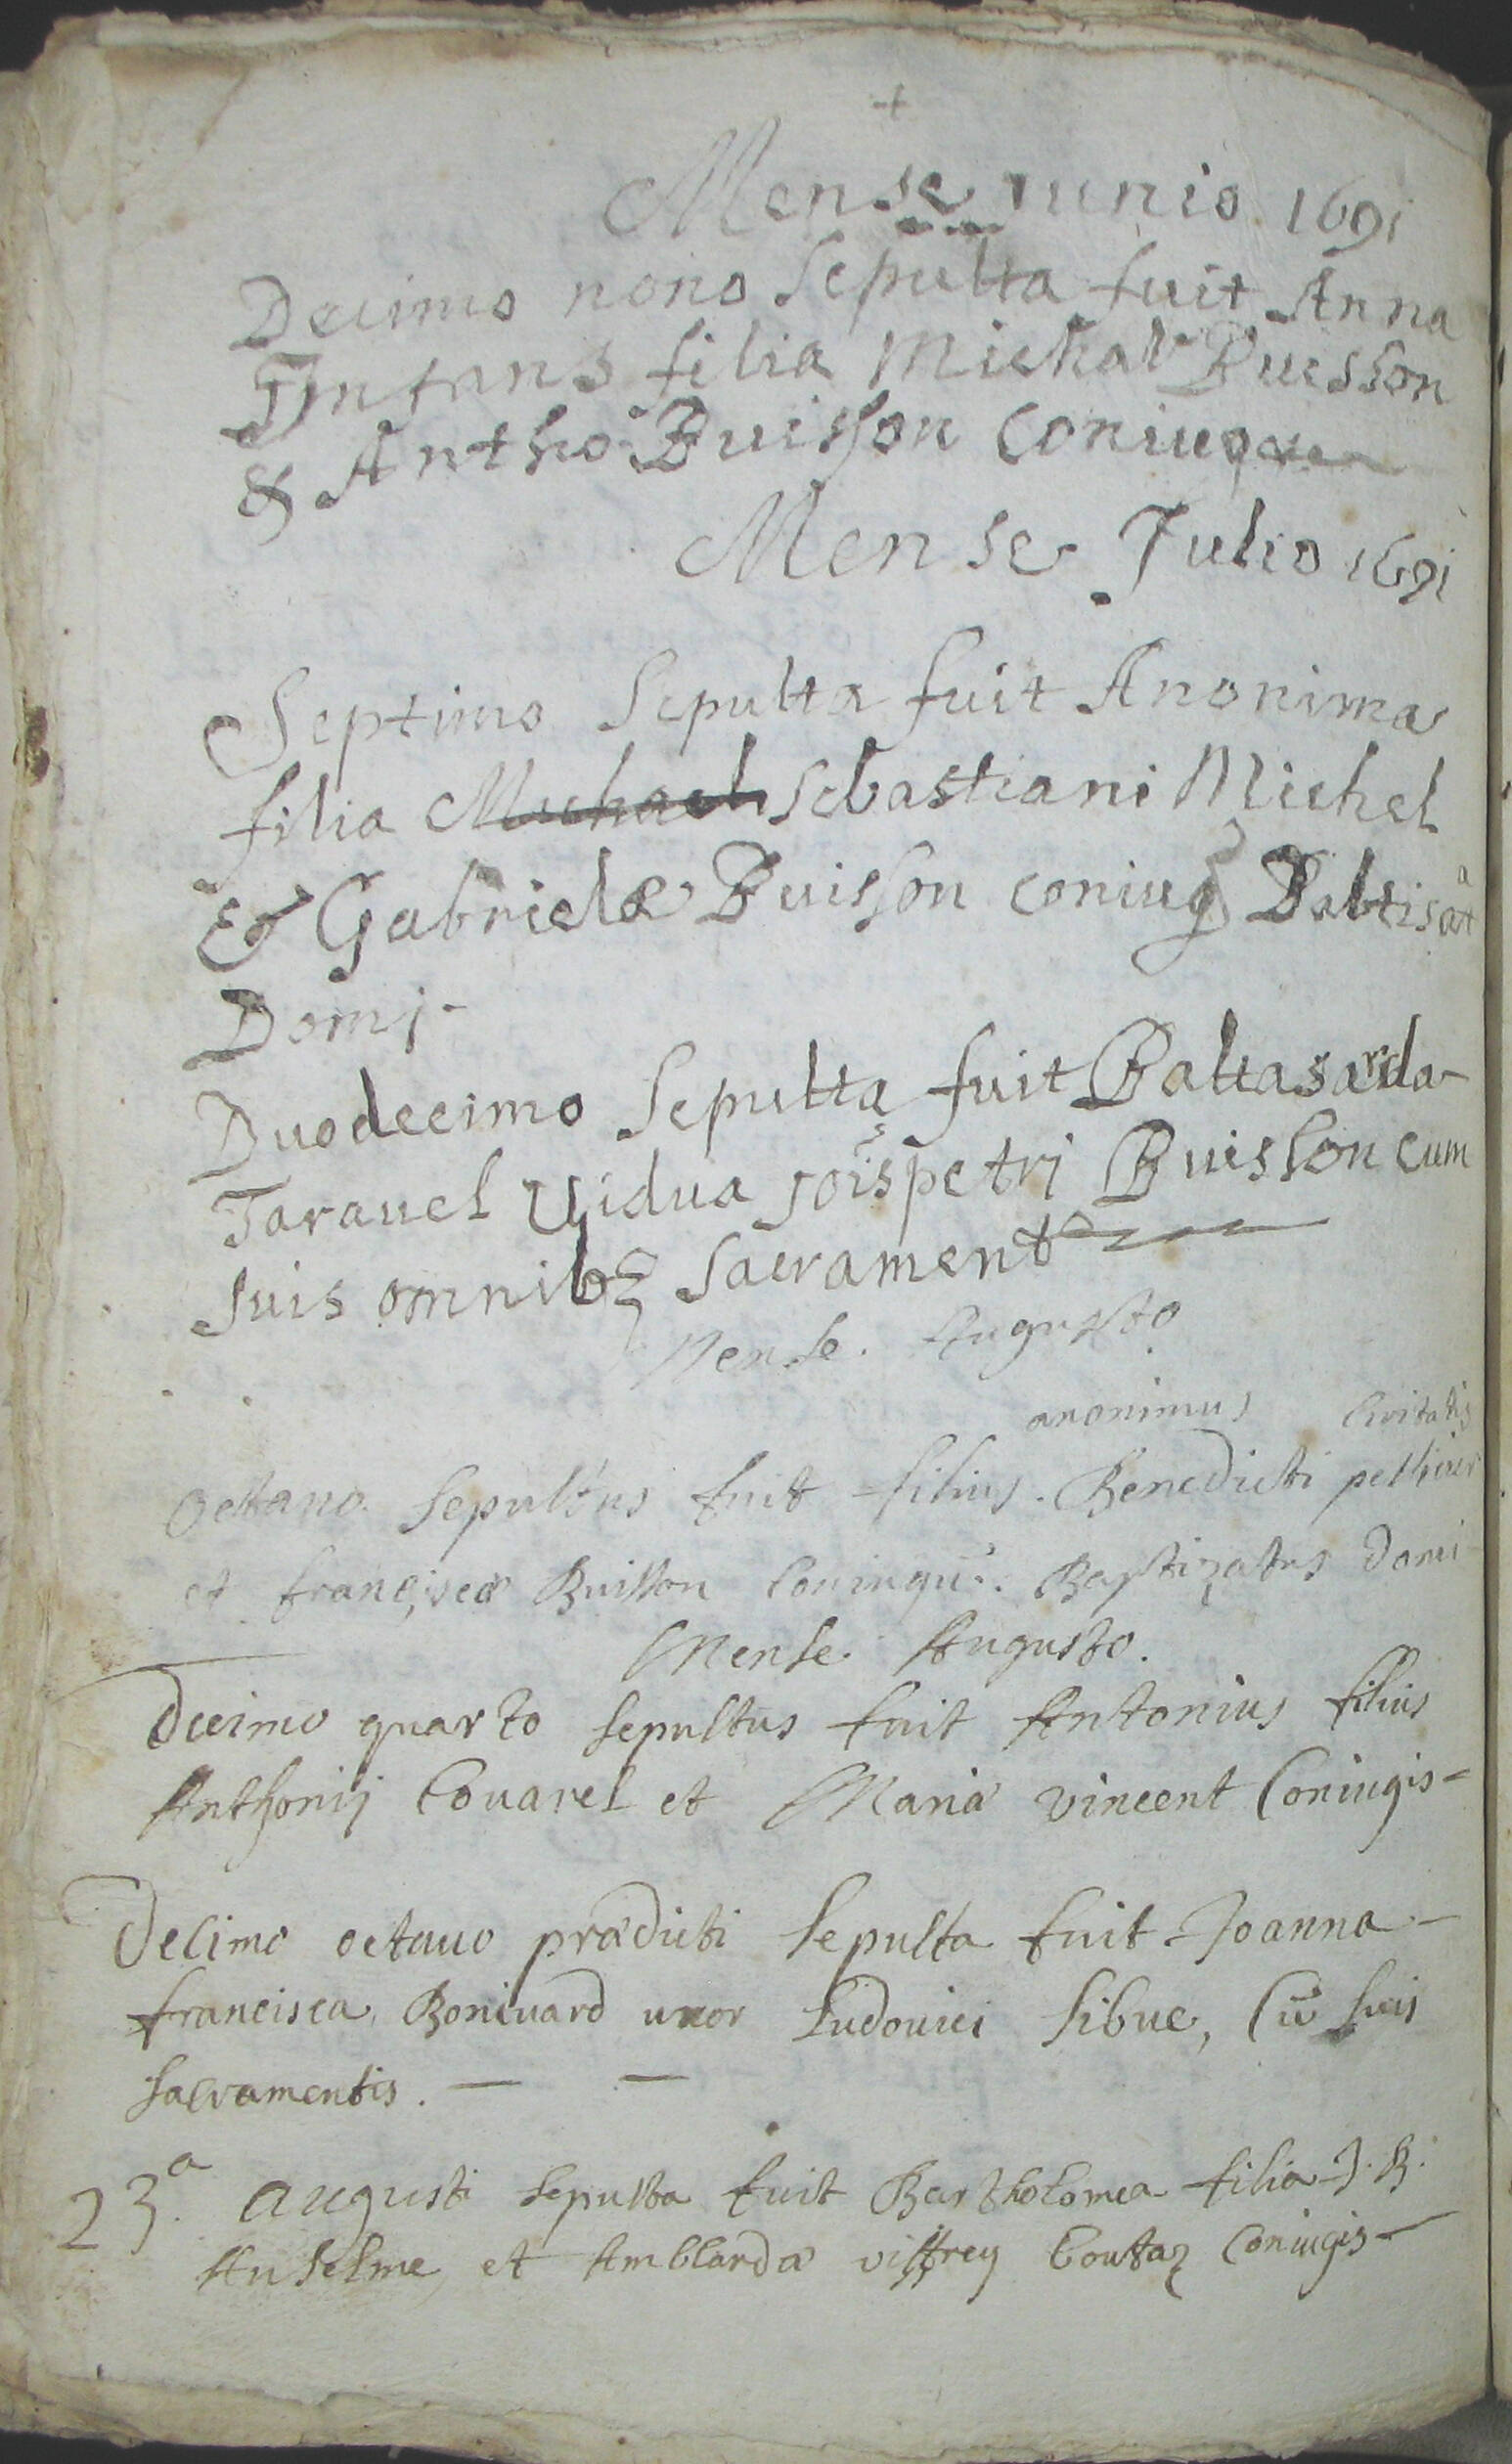 +
Mense iunio 1691
Decimo nono Sepulta fuit Anna
Infans filia Michal Buisson
& Antho Buisson coniug
Mense Julio 1691
Septimo Sepulta fuit Anonima
filia Michael Sebastiani Michel
Et Gabrielæ Buisson coniug Babtisat
Domj.
Duodecimo Sepulta fuit Baltasarda
Tarauel Vidua joīs petri Buisson cum
suis omnibꝫ Sacrament
Mense. Augusto
anonimus Civitatis
octauo Sepultus fuit filius. Benedicti
et franciscæ Buisson Coniugū. Baptizatus domi
Mense. Augusto.
Decimo quarto sepultus fuit Antonius filius
Anthonij Couarel et Mariæ vincent Coniugis
Decimo octauo prædicti sepulta fuit Joanna
francisca, Boniuard uxor Ludouici Sibue, Cū suis
sacramentis.
23.a augusti sepulta fuit Bartholomea filia J. B.
Anselme et Amblardæ viffrey Coutaz Coniugis